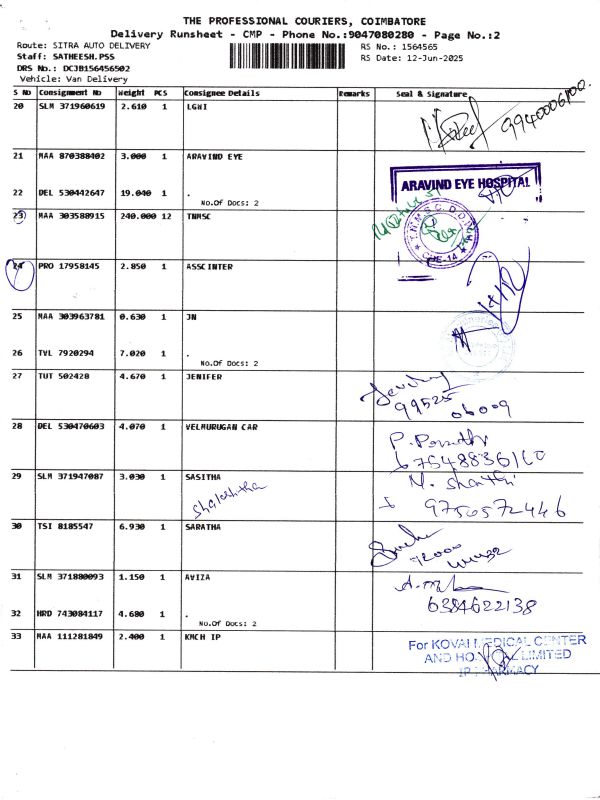 THE PROFESSIONAL COURIERS, COIMBATORE
Delivery Runsheet - CMP - Phone No.:9047080280 - Page No.:2
Route: SITRA AUTO DELIVERY
RS No.: 1564565
Staff: SATHEESH.PSS
RS Date: 12-Jun-2025
DRS No.: DCJB156456502
Vehicle: Van Delivery
S No Consignment No Weight PCS Consignee Details Remarks Seal & Signature
20 SLM 371960619 2.610 1 LGWI
9940006100.
21 MAA 870388402 3.000 1 ARAVIND EYE
ARAVIND EYE HOSPITAL
22 DEL 530442647 19.040 1 .
No.Of Docs: 2
23 MAA 303588915 240.000 12 TNMSC
24 PRO 17958145 2.850 1 ASSCINTER
25 MAA 303963781 0.630 1 JN
26 TVL 7920294 7.020 1 .
No.Of Docs: 2
27 TUT 502428 4.670 1 JENIFER
99525
06009
28 DEL 530470603 4.070 1 VELMURUGAN CAR
29 SLM 371947087 3.030 1 SASITHA
9756572446
30 TSI 8185547 6.930 1 SARATHA
31 SLM 371880093 1.150 1 AVIZA
6384622138
32 HRD 743084117 4.680 1 .
No.Of Docs: 2
33 MAA 111281849 2.400 1 KMCH IP
For KOVAI MEDICAL CENTER
AND LIMITED
IP PHARMACY